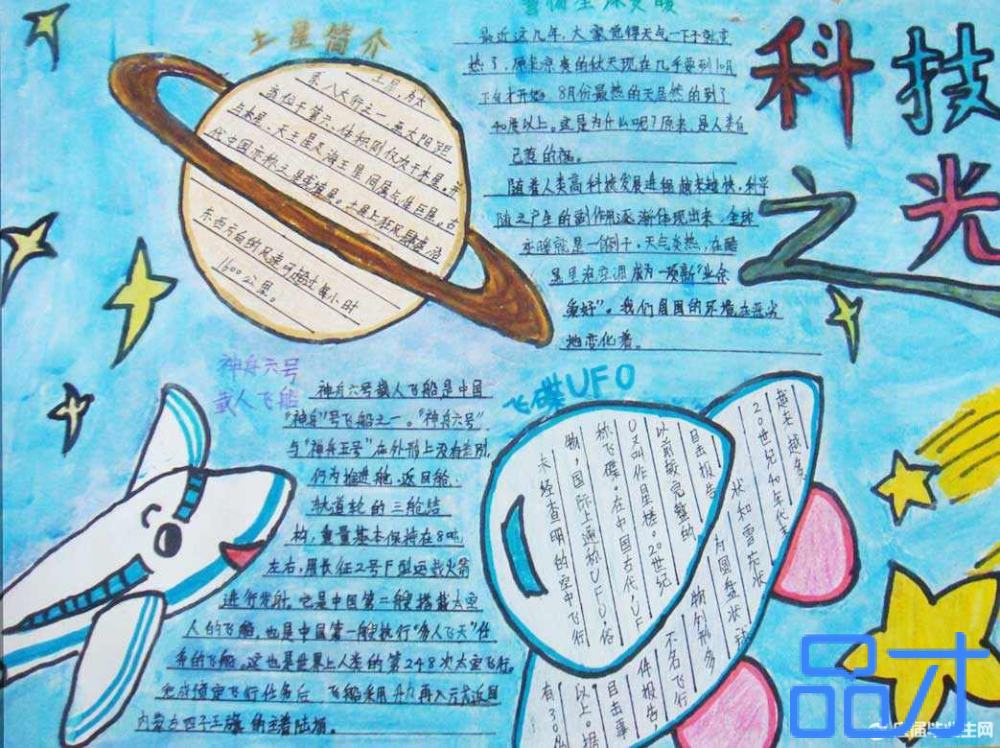 科技
之光
土星简介
土星，为太
系八大行之一，至太阳距
离位于第六、体积则仅次于木星。并
与木星、天王星及海王星同属气体巨星。古
代中国亦称之星或镇星。土星上狂风肆虐，沿
东西方向的风速可超过每小时
1600公里。
最近这几年，大家觉得天气一下子就变
热了，原来凉爽的秋天现在几乎要到10月
下旬才开始。8月份最热的天居然的到了
40度以上。这是为什么呢？原来，是人类自
己惹的祸。
随着人类高科技发展进程越来越快，科学
随之产生的副作用逐渐体现出来，全球
变暖就是一个例子，天气炎热，在酷
暑里泡空调成为一项新"业余
爱好"。我们周围的环境在悲劣
地变化着。
神舟六号
载人飞船
神舟六号载人飞船是中国
"神舟"号飞船之一。"神舟六号"
与"神舟五号"在外形上没有差别，
仍为推进舱、返回舱、
轨道轮的三舱结
构，重量基本保持在8吨
左右，用长征2号F型运载火箭
进行发射。它是中国第二艘搭载太空
人的飞船，也是中国第一艘执行"多人飞天"任
务的飞船。这也是世界上人类的第248次太空飞行。
内蒙古四子王旗
着陆场。
飞碟UFO
未经查明的空中飞行
国际上通称UFO，俗
称飞碟。在中国古代，UF
O又叫作星槎。20世纪
以前较完整的
目击报告
件报告，
目击事
以上。据
有30
不名飞行
物外形多
为圆盘状
状和雪茄状
20世纪40年代末
越来越多
品才
应届毕业生网